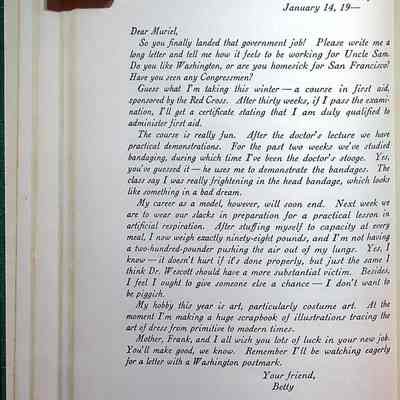 January 14, 19—
Dear Muriel,
So you finally landed that government job! Please write me a
long letter and tell me how it feels to be working for Uncle Sam.
Do you like Washington, or are you homesick for San Francisco?
Have you seen any Congressmen?
Guess what I'm taking this winter — a course in first aid,
sponsored by the Red Cross. After thirty weeks, if I pass the exami-
nation, I'll get a certificate stating that I am duly qualified to
administer first aid.
The course is really fun. After the doctor's lecture we have
practical demonstrations. For the past two weeks we've studied
bandaging, during which time I've been the doctor's stooge. Yes,
you've guessed it — he uses me to demonstrate the bandages. The
class say I was really frightening in the head bandage, which looks
like something in a bad dream.
My career as a model, however, will soon end. Next week we
are to wear our slacks in preparation for a practical lesson in
artificial respiration. After stuffing myself to capacity at every
meal, I now weigh exactly ninety-eight pounds, and I'm not having
a two-hundred-pounder pushing the air out of my lungs. Yes, I
know — it doesn't hurt if it's done properly, but just the same I
think Dr. Wescott should have a more substantial victim. Besides,
I feel I ought to give someone else a chance — I don't want to
be piggish.
My hobby this year is art, particularly costume art. At the
moment I'm making a huge scrapbook of illustrations tracing the
art of dress from primitive to modern times.
Mother, Frank, and I all wish you lots of luck in your new job.
You'll make good, we know. Remember I'll be watching eagerly
for a letter with a Washington postmark.
Your friend,
Betty